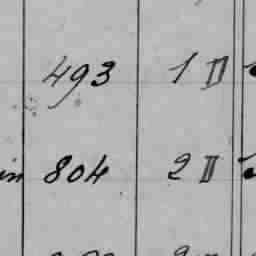 493 1 II
in 804 2 II